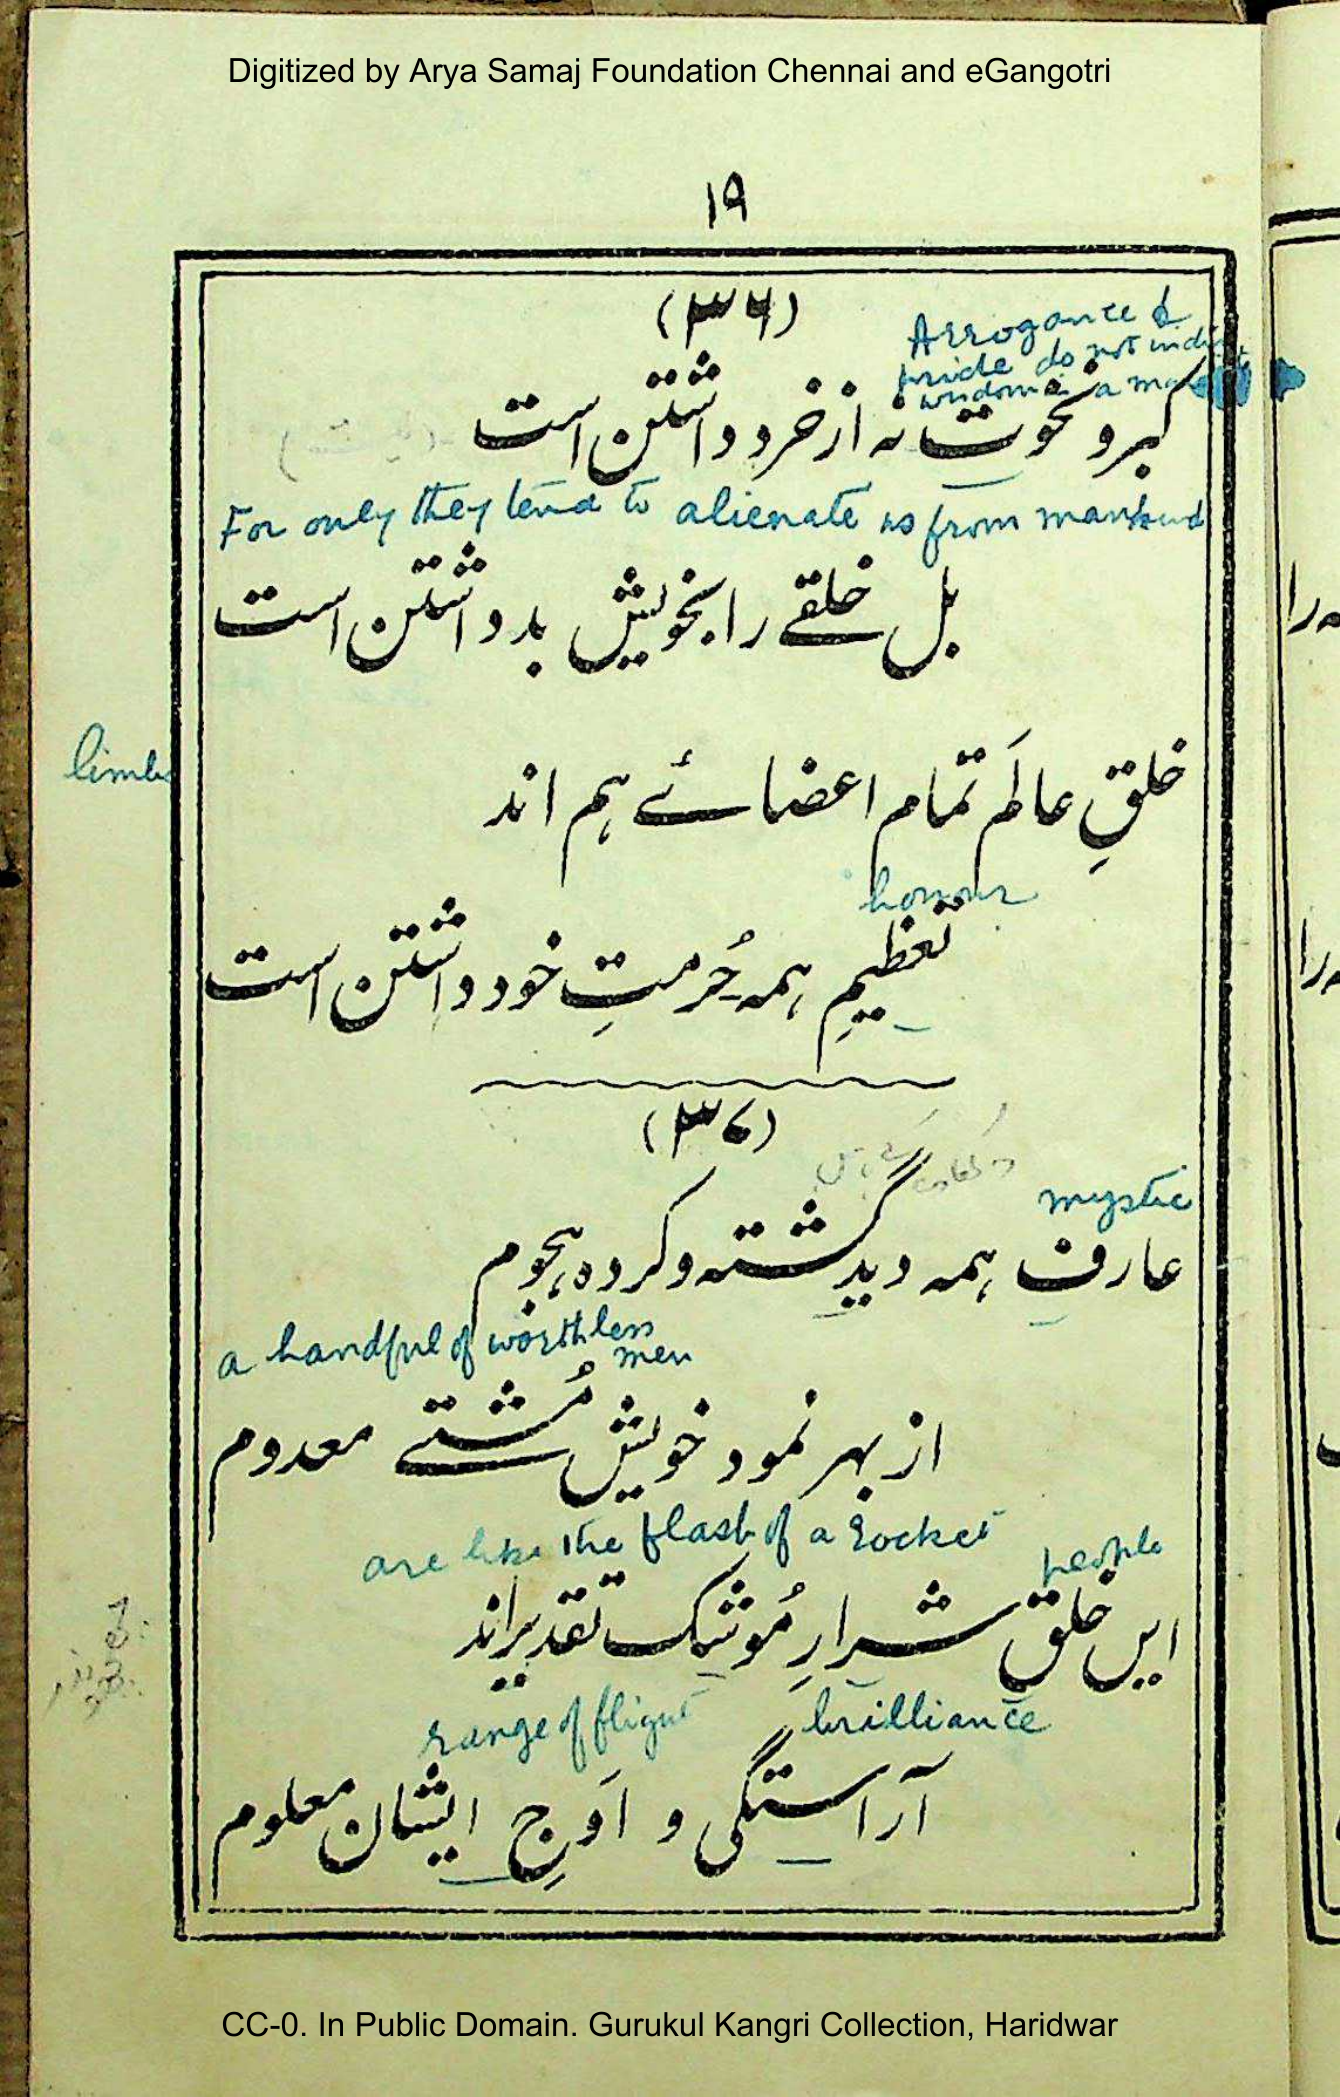 Digitized by Arya Samaj Foundation Chennai and eGangotri
۱۹
(۳۶)
Arrogance &
pride do not indi
wisdom a ma
کبر و نخوت نہ از خرد داشتن است
For only they tend to alienate us from mankind
بل خلقے را بخویش بد داشتن است
limbs
خلقِ عالَم تمام اعضائے ہم اند
honour
تعظیمِ ہمہ حُرمتِ خود داشتن است
(۳۷)
mystic
عارف ہمہ دید گشتہ و کردہ ہجوم
a handful of worthless
men
از بہر نمود خویش مُشتے معدوم
are like the flash of a rocket
people
ایں خلق شرارِ مُوشک تقدیر اند
range of flight
brilliance
آراستگی و اَوجِ ایشان معلوم
CC-0. In Public Domain. Gurukul Kangri Collection, Haridwar